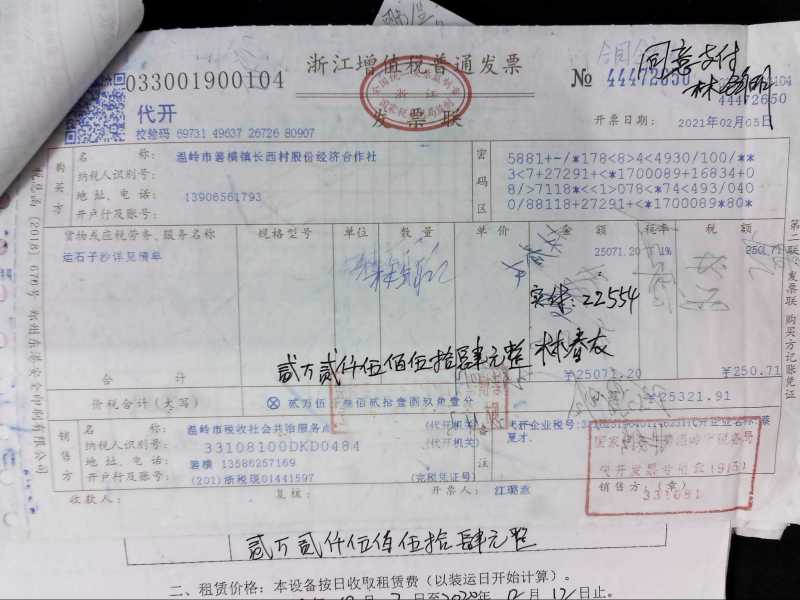 033001900104
浙江增值税普通发票
发票联
№ 44472650
44472650
同意支付
代开
校验码 69731 49637 26726 80907
开票日期: 2021年02月05日
购买方
名 称: 温岭市箬横镇长西村股份经济合作社
纳税人识别号:
地 址、电 话: 13906561793
开户行及账号:
密码区
5881+-/*178<8>4<4930/100/**
3<7+27291+<*1700089+16834+0
8/>7118*<<1>078<*74<493/040
0/88118+27291+<*1700089*80*
货物或应税劳务、服务名称 规格型号 单位 数量 单价 金额 税率 税额
运石子沙详见清单 25071.20 1% 250.71
实付: 22554
贰万贰仟伍佰伍拾肆元整 林春友
合 计 ¥25071.20 ¥250.71
价税合计(大写) ¥25321.91
销售方
名 称: 温岭市税收社会共治服务点 (代开机关)
纳税人识别号: 33108100DKD0484 (代开机关)
地 址、电 话: 箬横 13586257169
开户行及账号: (201)浙税琐01441597 (完税凭证号)
代开企业税号:
代开企业名称:蔡
夏才.
代开发票专用章
331081
收款人: 复核: 开票人: 江璐燕 销售方: (章)
第二联:发票联 购买方记账凭证
贰万贰仟伍佰伍拾肆元整
二、租赁价格: 本设备按日收取租赁费(以装运日开始计算)。